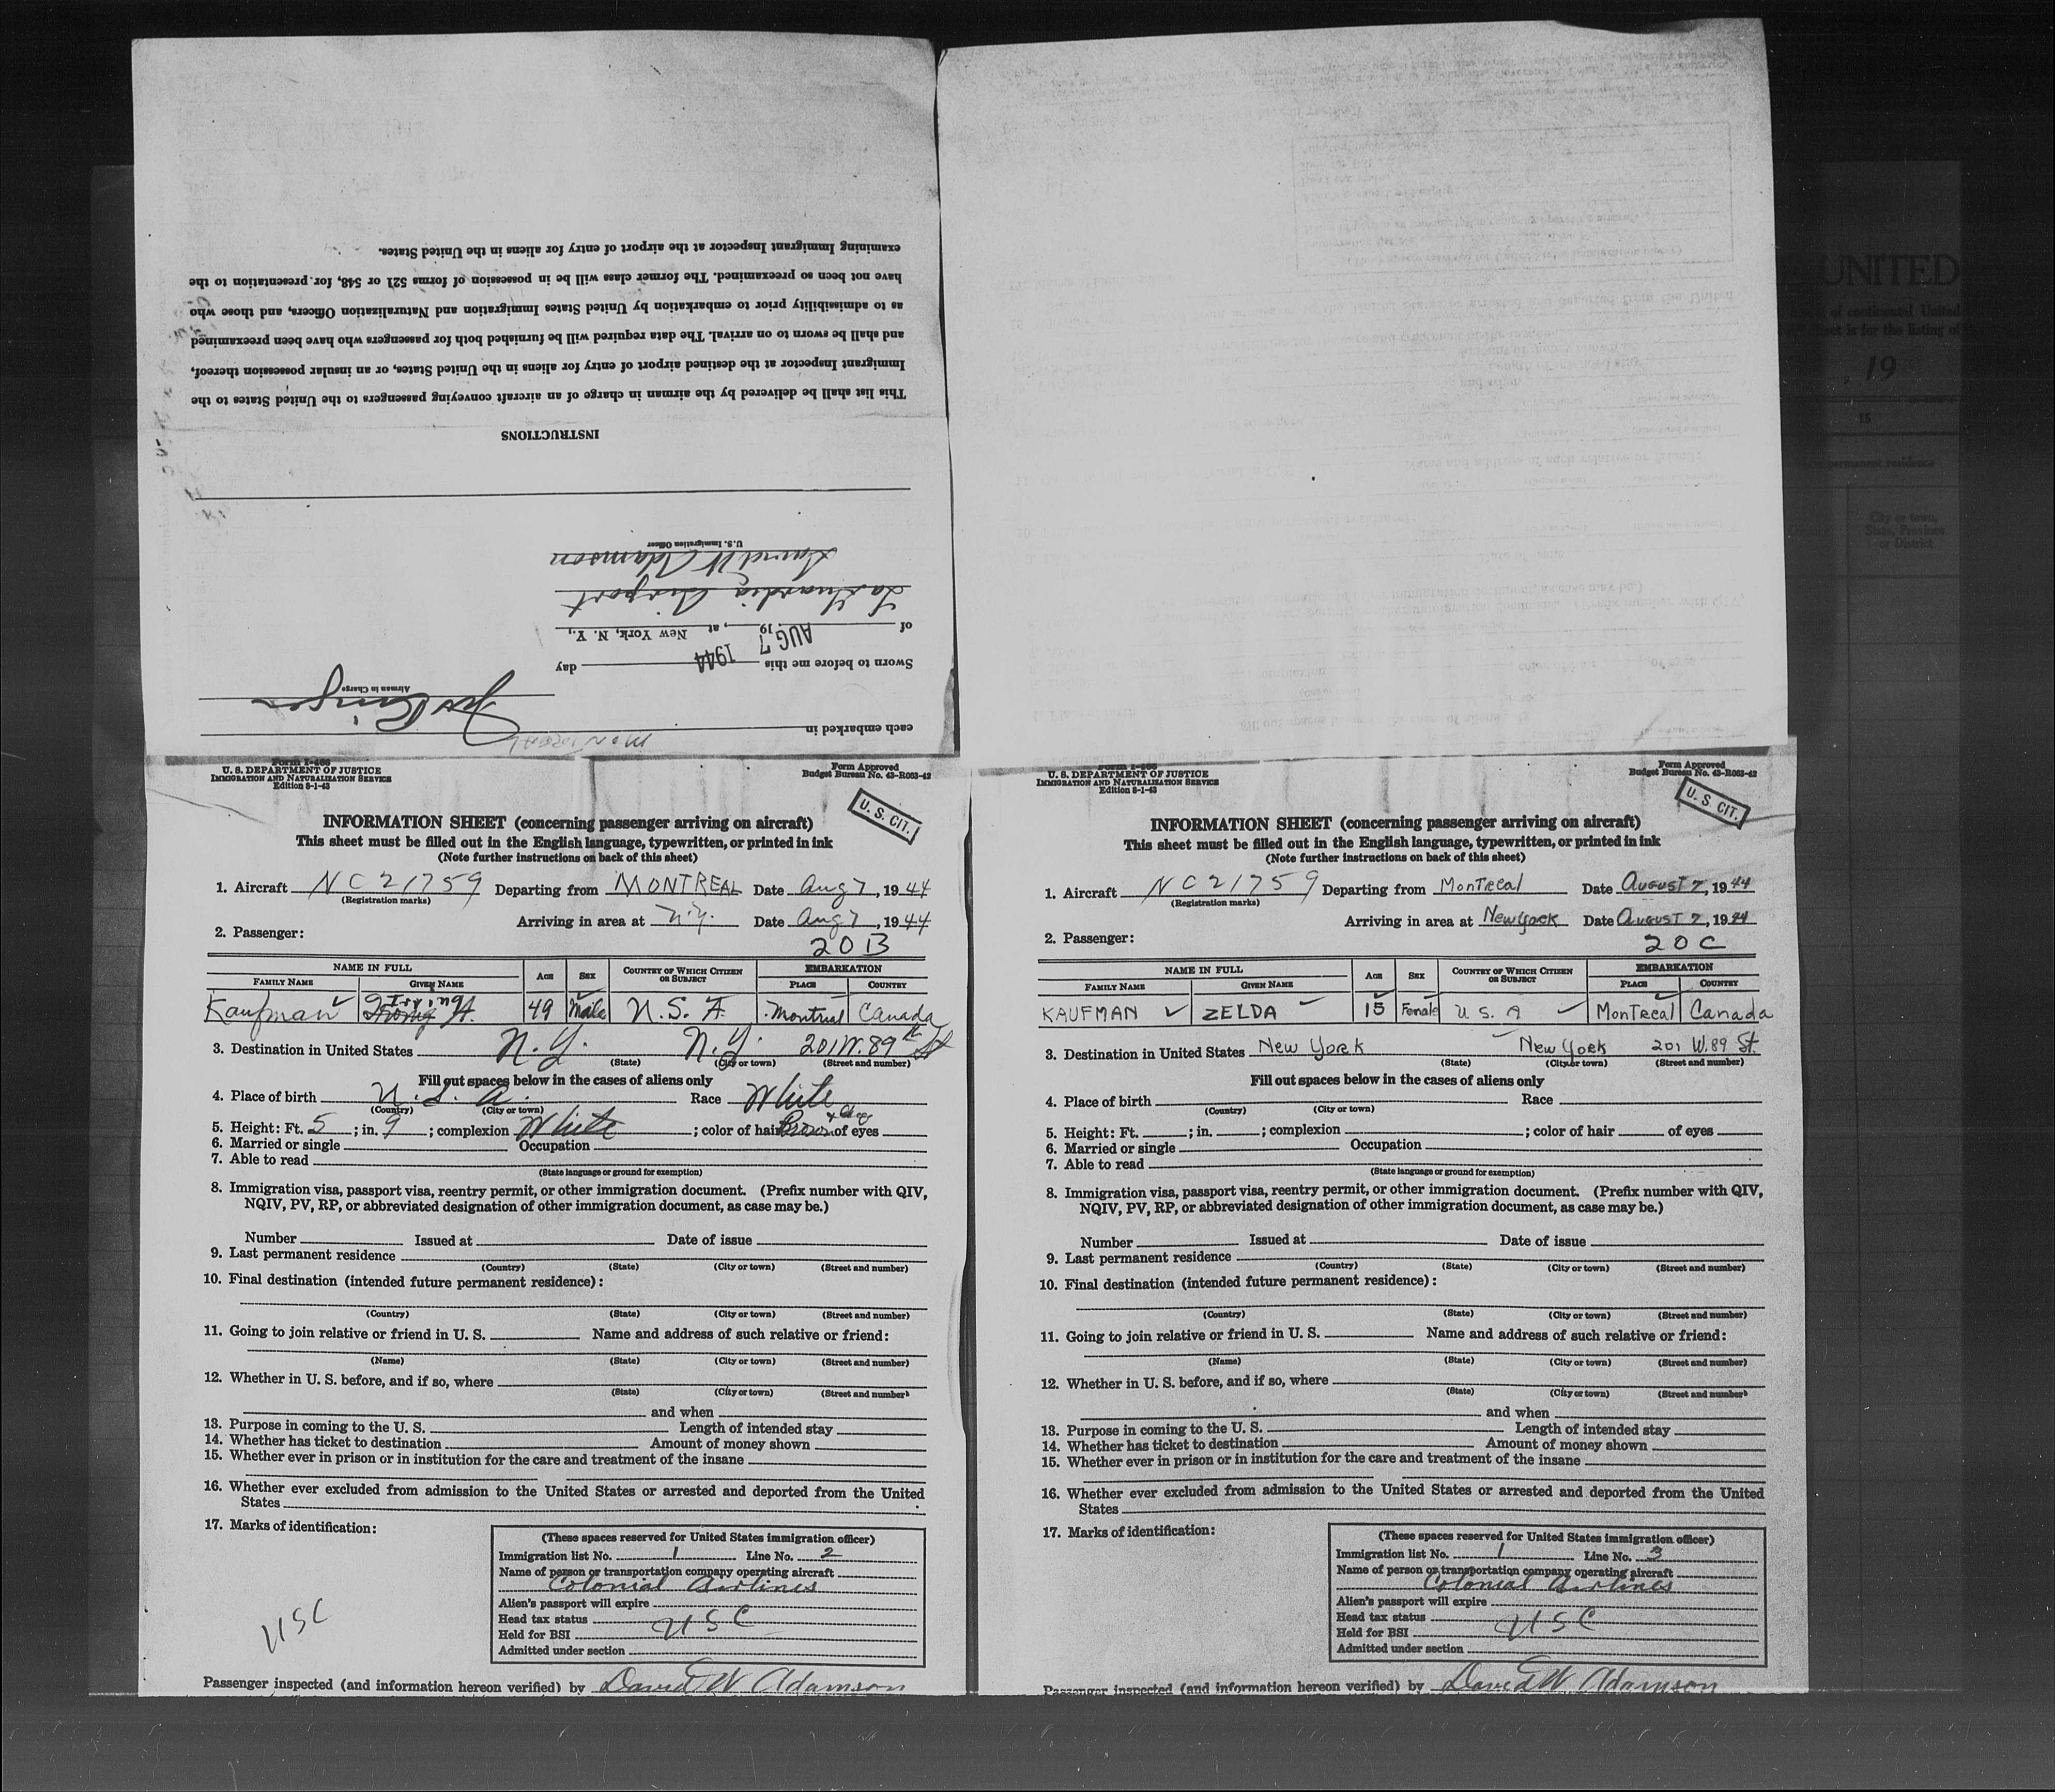 each embarked in MONTREAL
Airman in Charge
Sworn to before me this AUG 7 1944 day
of , 19 , at New York, N. Y.,
La Guardia Airport
David W Adamson
U. S. Immigration Officer
INSTRUCTIONS
This list shall be delivered by the airman in charge of an aircraft conveying passengers to the United States to the
Immigrant Inspector at the destined airport of entry for aliens in the United States, or an insular possession thereof,
and shall be sworn to on arrival. The data required will be furnished both for passengers who have been preexamined
as to admissibility prior to embarkation by United States Immigration and Naturalization Officers, and those who
have not been so preexamined. The former class will be in possession of forms 521 or 548, for presentation to the
examining Immigrant Inspector at the airport of entry for aliens in the United States.
UNITED
of continental United
is for the listing of
, 19
15
permanent residence
City or town,
State, Province
or District
Form I-466
U. S. DEPARTMENT OF JUSTICE
IMMIGRATION AND NATURALIZATION SERVICE
Edition 8-1-43
Form Approved
Budget Bureau No. 43-R063-42
U. S. CIT.
INFORMATION SHEET (concerning passenger arriving on aircraft)
This sheet must be filled out in the English language, typewritten, or printed in ink
(Note further instructions on back of this sheet)
1. Aircraft NC21759 Departing from MONTREAL Date Aug 7, 1944
(Registration marks)
Arriving in area at N.Y. Date Aug 7, 1944
2. Passenger: 20B
NAME IN FULL AGE SEX COUNTRY OF WHICH CITIZEN OR SUBJECT EMBARKATION
FAMILY NAME GIVEN NAME PLACE COUNTRY
Kaufman Irving H. 49 Male U.S.A. Montreal Canada
3. Destination in United States N.Y. N.Y. 201 W. 89th St
(State) (City or town) (Street and number)
Fill out spaces below in the cases of aliens only
4. Place of birth U.S.A. Race White
(Country) (City or town)
5. Height: Ft. 5; in. 9; complexion White; color of hair Brown of eyes
6. Married or single Occupation
7. Able to read
(State language or ground for exemption)
8. Immigration visa, passport visa, reentry permit, or other immigration document. (Prefix number with QIV,
NQIV, PV, RP, or abbreviated designation of other immigration document, as case may be.)
Number Issued at Date of issue
9. Last permanent residence
(Country) (State) (City or town) (Street and number)
10. Final destination (intended future permanent residence):
(Country) (State) (City or town) (Street and number)
11. Going to join relative or friend in U. S. Name and address of such relative or friend:
(Name) (State) (City or town) (Street and number)
12. Whether in U. S. before, and if so, where
(State) (City or town) (Street and number)
and when
13. Purpose in coming to the U. S. Length of intended stay
14. Whether has ticket to destination Amount of money shown
15. Whether ever in prison or in institution for the care and treatment of the insane
16. Whether ever excluded from admission to the United States or arrested and deported from the United
States
17. Marks of identification:
(These spaces reserved for United States immigration officer)
Immigration list No. 1 Line No. 2
Name of person or transportation company operating aircraft
Colonial Airlines
Alien's passport will expire
Head tax status USC
Held for BSI
Admitted under section
USC
Passenger inspected (and information hereon verified) by David W Adamson
Form I-466
U. S. DEPARTMENT OF JUSTICE
IMMIGRATION AND NATURALIZATION SERVICE
Edition 8-1-43
Form Approved
Budget Bureau No. 43-R063-42
U. S. CIT.
INFORMATION SHEET (concerning passenger arriving on aircraft)
This sheet must be filled out in the English language, typewritten, or printed in ink
(Note further instructions on back of this sheet)
1. Aircraft NC21759 Departing from Montreal Date August 7, 1944
(Registration marks)
Arriving in area at New York Date August 7, 1944
2. Passenger: 20C
NAME IN FULL AGE SEX COUNTRY OF WHICH CITIZEN OR SUBJECT EMBARKATION
FAMILY NAME GIVEN NAME PLACE COUNTRY
KAUFMAN ZELDA 15 Female U S A Montreal Canada
3. Destination in United States New York New York 201 W. 89 St.
(State) (City or town) (Street and number)
Fill out spaces below in the cases of aliens only
4. Place of birth Race
(Country) (City or town)
5. Height: Ft. ; in. ; complexion ; color of hair of eyes
6. Married or single Occupation
7. Able to read
(State language or ground for exemption)
8. Immigration visa, passport visa, reentry permit, or other immigration document. (Prefix number with QIV,
NQIV, PV, RP, or abbreviated designation of other immigration document, as case may be.)
Number Issued at Date of issue
9. Last permanent residence
(Country) (State) (City or town) (Street and number)
10. Final destination (intended future permanent residence):
(Country) (State) (City or town) (Street and number)
11. Going to join relative or friend in U. S. Name and address of such relative or friend:
(Name) (State) (City or town) (Street and number)
12. Whether in U. S. before, and if so, where
(State) (City or town) (Street and number)
and when
13. Purpose in coming to the U. S. Length of intended stay
14. Whether has ticket to destination Amount of money shown
15. Whether ever in prison or in institution for the care and treatment of the insane
16. Whether ever excluded from admission to the United States or arrested and deported from the United
States
17. Marks of identification:
(These spaces reserved for United States immigration officer)
Immigration list No. 1 Line No. 3
Name of person or transportation company operating aircraft
Colonial Airlines
Alien's passport will expire
Head tax status USC
Held for BSI
Admitted under section
Passenger inspected (and information hereon verified) by David W Adamson